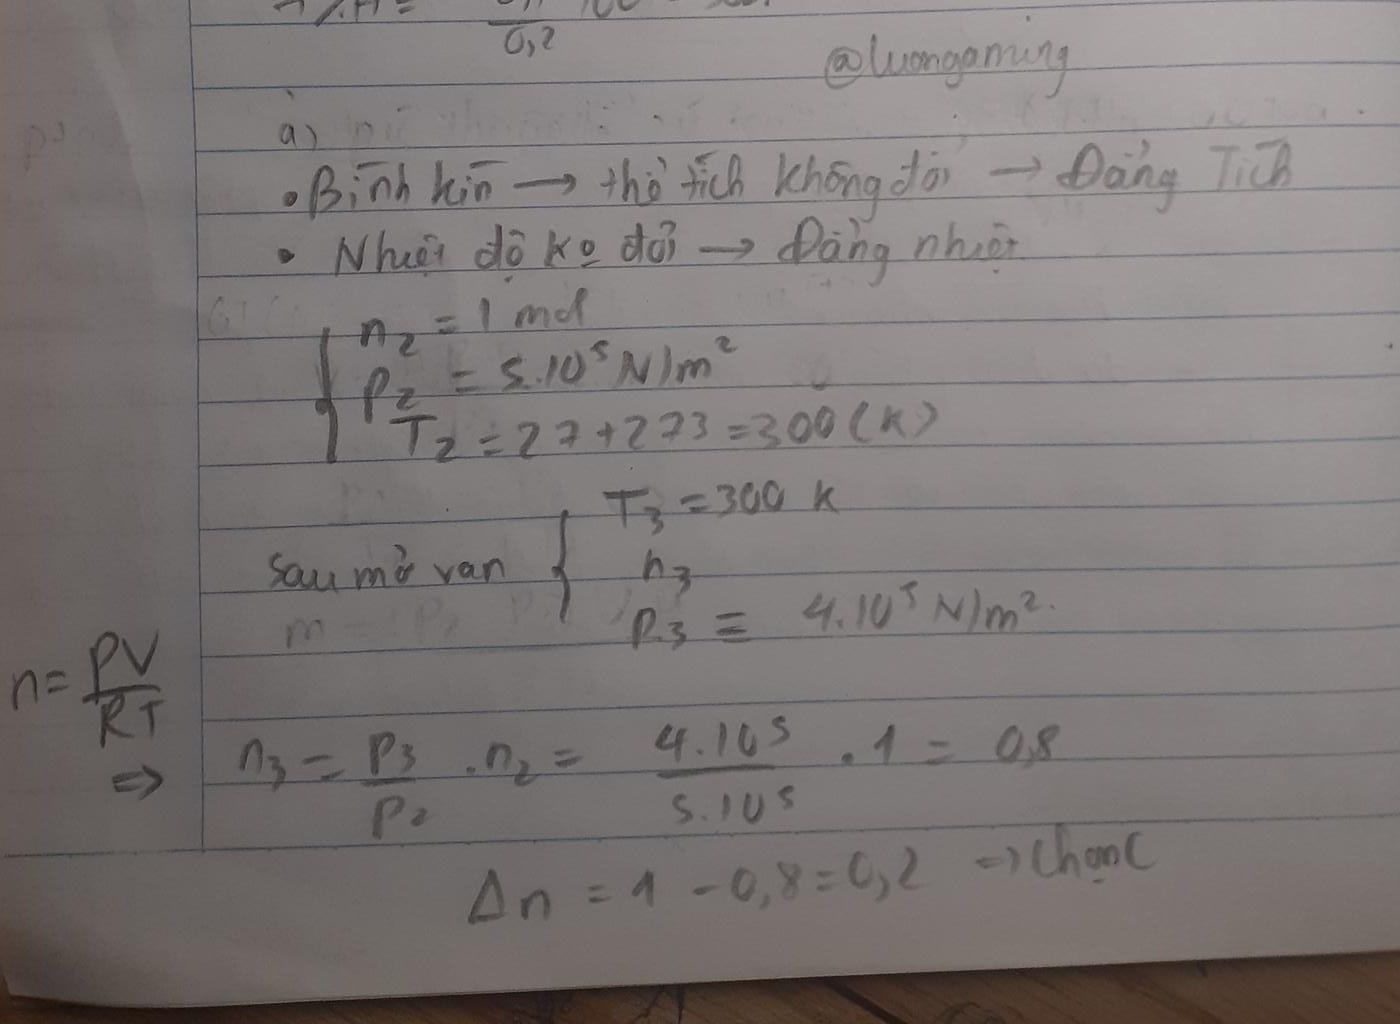 0,2
@luongaming
a)
• Bình kín → thể tích không đổi → Đẳng Tích
• Nhiệt độ ko đổi → Đẳng nhiệt
n₂ = 1 mol
P₂ = 5.10⁵ N/m²
T₂ = 27 + 273 = 300 (K)
T₃ = 300 K
sau mở van
n₃
P₃ = 4.10⁵ N/m².
n = PV/RT
⇒ n₃ = P₃/P₂ . n₂ = 4.10⁵/5.10⁵ . 1 = 0,8
Δn = 1 - 0,8 = 0,2 ⇒ Chọn C